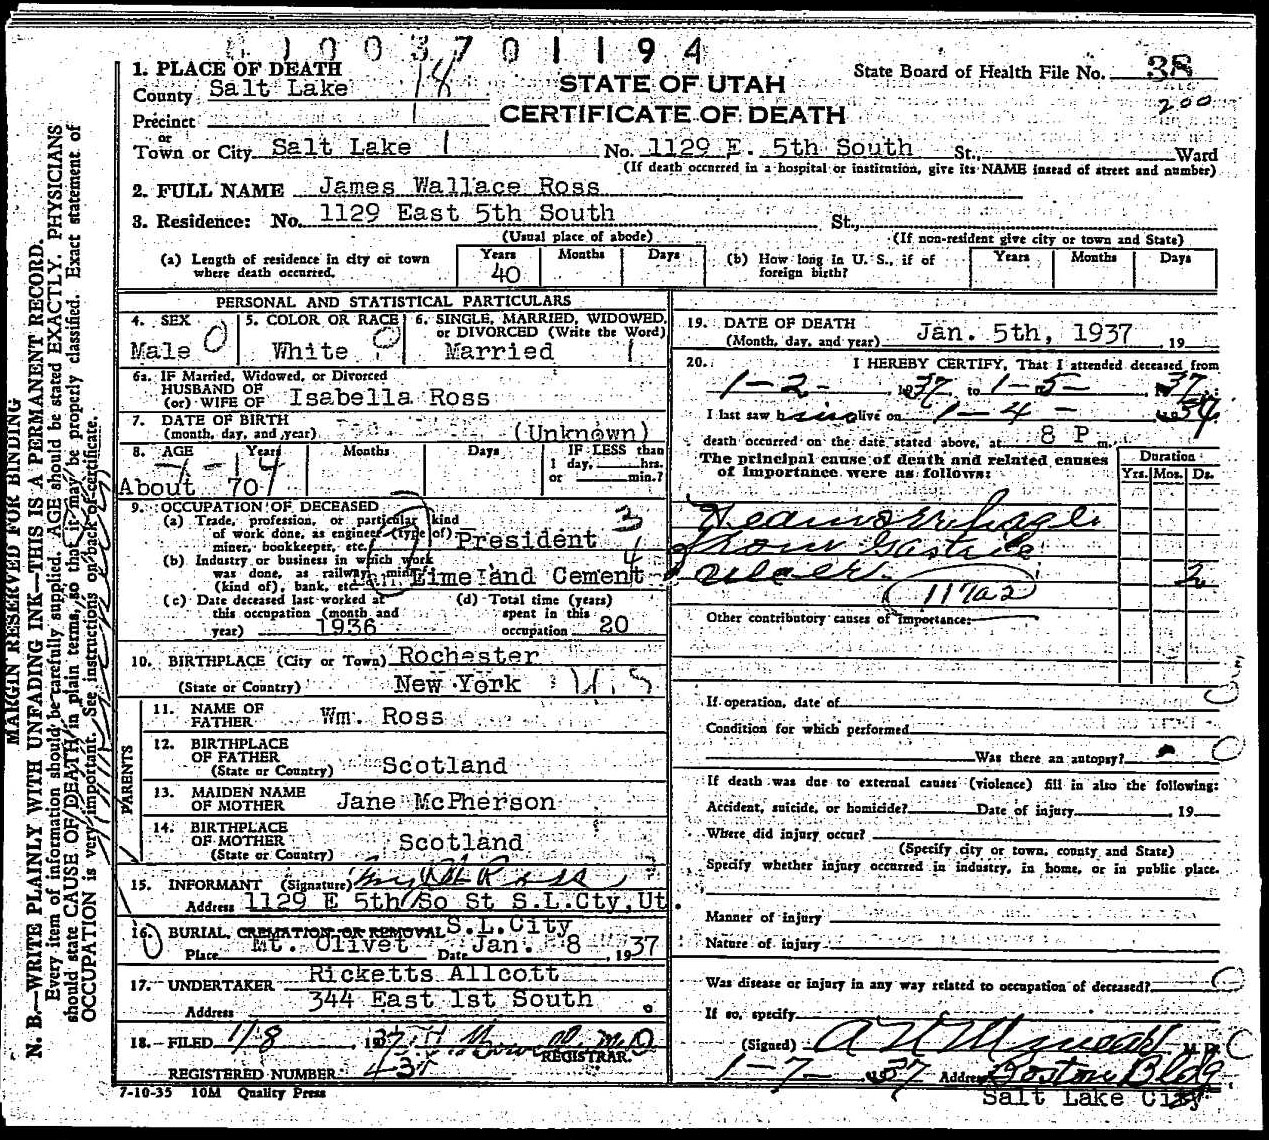 003701194
1. PLACE OF DEATH
County Salt Lake 18
STATE OF UTAH
CERTIFICATE OF DEATH
State Board of Health File No. 38
200
Precinct
or
Town or City Salt Lake 1 No. 1129 E. 5th South St., Ward
(If death occurred in a hospital or institution, give its NAME instead of street and number)
2. FULL NAME James Wallace Ross
3. Residence: No. 1129 East 5th South St.,
(Usual place of abode) (If non-resident give city or town and State)
(a) Length of residence in city or town where death occurred. Years 40 Months Days
(b) How long in U. S., if of foreign birth? Years Months Days
PERSONAL AND STATISTICAL PARTICULARS
4. SEX Male 0
5. COLOR OR RACE White 0
6. SINGLE, MARRIED, WIDOWED, or DIVORCED (Write the Word) Married 1
6a. IF Married, Widowed, or Divorced
HUSBAND OF
(or) WIFE OF Isabella Ross
7. DATE OF BIRTH
(month, day, and year) (Unknown)
8. AGE Years Months Days IF LESS than
1 day, hrs.
or min.?
About 70
9. OCCUPATION OF DECEASED
(a) Trade, profession, or particular kind
of work done, as engineer (type of)
miner, bookkeeper, etc. President
3
4
(b) Industry or business in which work
was done, as railway, mine
(kind of), bank, etc. Lime and Cement
(c) Date deceased last worked at
this occupation (month and
year) 1936
(d) Total time (years)
spent in this
occupation 20
10. BIRTHPLACE (City or Town) Rochester
(State or Country) New York U.S
PARENTS
11. NAME OF
FATHER Wm. Ross
12. BIRTHPLACE
OF FATHER
(State or Country) Scotland
13. MAIDEN NAME
OF MOTHER Jane McPherson
14. BIRTHPLACE
OF MOTHER
(State or Country) Scotland
15. INFORMANT (Signature) Ross
Address 1129 E 5th So St S.L.Cty,Ut.
16. BURIAL, CREMATION OR REMOVAL S.L.City
Place Mt. Olivet Date Jan. 8, 1937
17. UNDERTAKER Ricketts Allcott
Address 344 East 1st South
18. FILED 1/8, 1937 M.D
REGISTRAR.
REGISTERED NUMBER
7-10-35 10M Quality Press
19. DATE OF DEATH
(Month, day, and year) Jan. 5th, 1937, 19
20. I HEREBY CERTIFY, That I attended deceased from
1-2-, 1937, to 1-5-, 1937.
I last saw him alive on 1-4-, 1937
death occurred on the date stated above, at 8 P m.
The principal cause of death and related causes
of importance were as follows:
Duration
Yrs. Mos. Ds.
Heamorrhage
from Gastric
ulcer. 2
117a2
Other contributory causes of importance:
If operation, date of
Condition for which performed
Was there an autopsy?
If death was due to external causes (violence) fill in also the following:
Accident, suicide, or homicide? Date of injury, 19
Where did injury occur?
(Specify city or town, county and State)
Specify whether injury occurred in industry, in home, or in public place.
Manner of injury
Nature of injury
Was disease or injury in any way related to occupation of deceased?
If so, specify
(Signed) M. D.
1-7-, 1937 Address Boston Bldg.
Salt Lake City
MARGIN RESERVED FOR BINDING
N. B.—WRITE PLAINLY WITH UNFADING INK—THIS IS A PERMANENT RECORD.
Every item of information should be carefully supplied. AGE should be stated EXACTLY. PHYSICIANS
should state CAUSE OF DEATH in plain terms, so that it may be properly classified. Exact statement of
OCCUPATION is very important. See instructions on back of certificate.